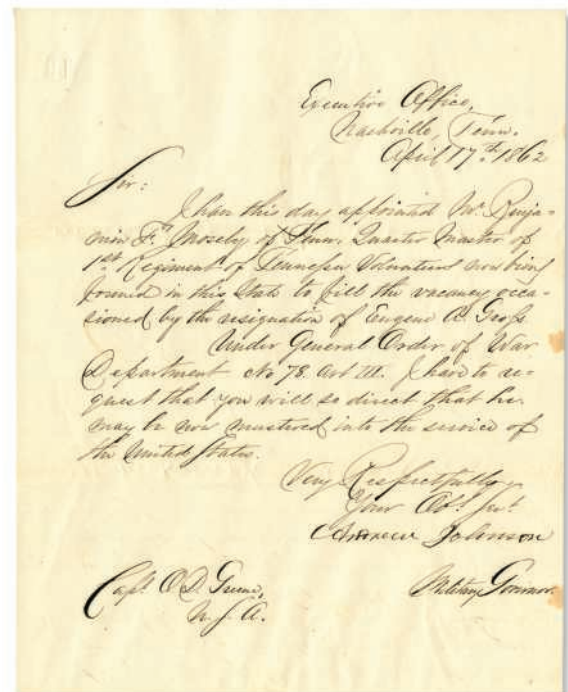 Executive Office,
Nashville, Tenn.
April 17th 1862
Sir:
I have this day appointed Mr. Benja-
min F. Mosely of Tenn. Quarter Master of
1st Regiment of Tennessee Volunteers now being
formed in this State to fill the vacancy occa-
sioned by the resignation of Eugene A.
Under General Order of War
Department No 78. Art III. I have to re-
quest that you will so direct that he
may be now mustered into the service of
the United States.
Very Respectfully
Your Obt. Svt.
Andrew Johnson
Military Governor.
Capt. O D. Greene,
U. S. A.